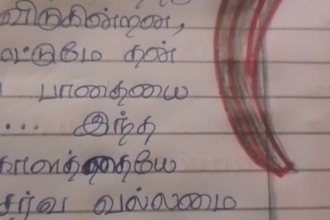 விடுகின்றன,
மட்டுமே தன்
பாதையை
... இந்த
காலத்தையே
சர்வ வல்லமை